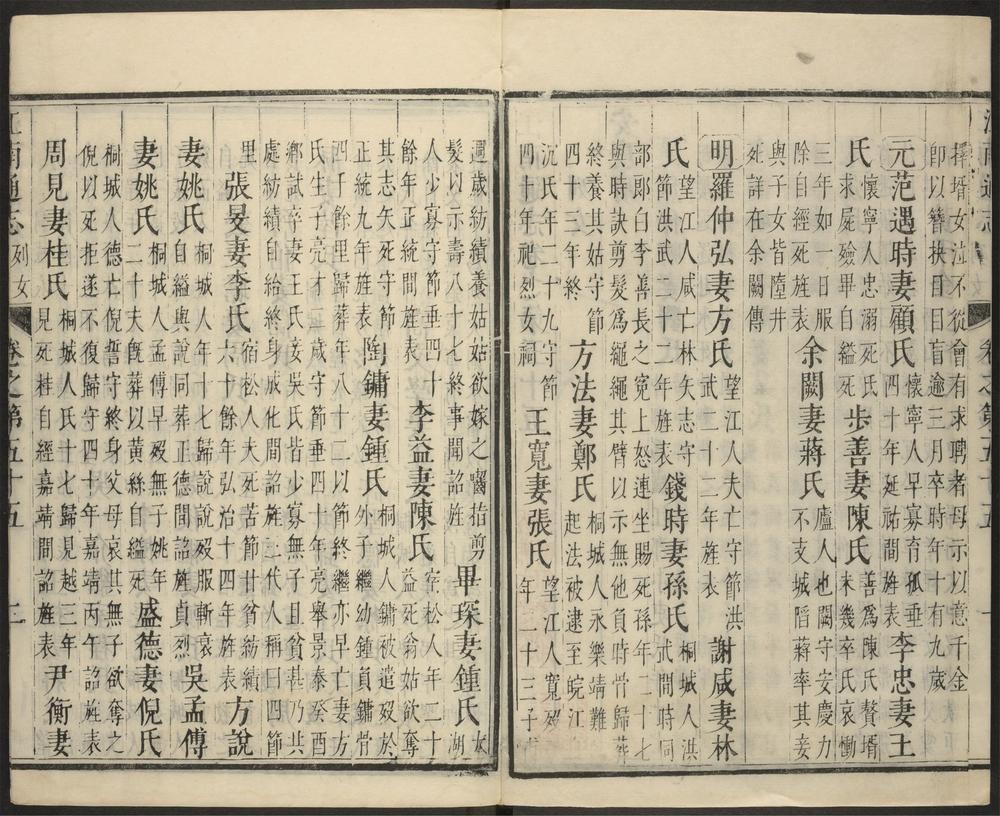 擇壻女泣不從會有求聘者母示以意千金
卽以簪抉目目盲逾三月卒時年十有九歲
元范遇時妻顧氏懷寧人早寡育孤垂
四十年延祐間旌表李忠妻王
氏懷寧人忠溺死氏
求屍殮畢自縊死步善妻陳氏善爲陳氏贅壻
未幾卒氏哀慟
三年如一日服
除自經死
余闕妻蔣氏廬人也闕守安慶力
不支城陷蔣率其妾
與子女皆陸井
死詳在余闕傳
明羅仲弘妻方氏望江人夫亡守節洪
武二十二年旌表謝咸妻林
氏望江人咸亡林矢志守
節洪武二十年旌表錢時妻孫氏桐城人洪
武間時同
部郎白李善長之寃上怒連坐賜死孫年二十七
與時訣剪髮爲繩繩其臂以示無他負時骨歸葬
終養其姑守節
四十三年終方法妻鄭氏桐城人永樂靖難
起法被逮至皖江
沉氏年二十九守節
四十年祀烈女祠王寬妻張氏望江人寬歿
年二十三子
週歲紡績養姑姑欲嫁之嚙指剪
髮以示壽八十七終事聞詔旌畢琛妻鍾氏
人少寡守節垂四十
餘年正統間旌表李益妻陳氏宿松人年二十
益死翁姑欲奪
其志矢死守節
正統九年旌表陶鏞妻鍾氏桐城人鏞被遣歿於
外子繼幼鍾負鏞骨
四千餘里歸葬年八十二以節終繼亦早亡妻方
氏生子亮才歲守節垂四十年亮舉景泰癸酉
鄉試卒妻王氏妾吳氏皆少寡無子且貧甚乃共
處紡績自給終身成化間詔旌三代人稱曰四節
里張旻妻李氏宿松人夫死苦節甘貧紡績
六十餘年弘治十四年旌表方說
妻姚氏桐城人年十七歸說說歿服斬衰
自縊與說同葬正德間詔旌貞烈吳孟傅
妻姚氏桐城人孟傅早歿無子姚年
二十夫旣葬以黃絲自縊死盛德妻倪氏
桐城人德亡倪誓守終身父母哀其無子欲奪之
倪以死拒遂不復歸守四十年嘉靖丙午詔旌表
周見妻桂氏桐城人氏十七歸見越三年
見死桂自經嘉靖間詔旌表尹衡妻
江南通志列女 卷之第五十五 二